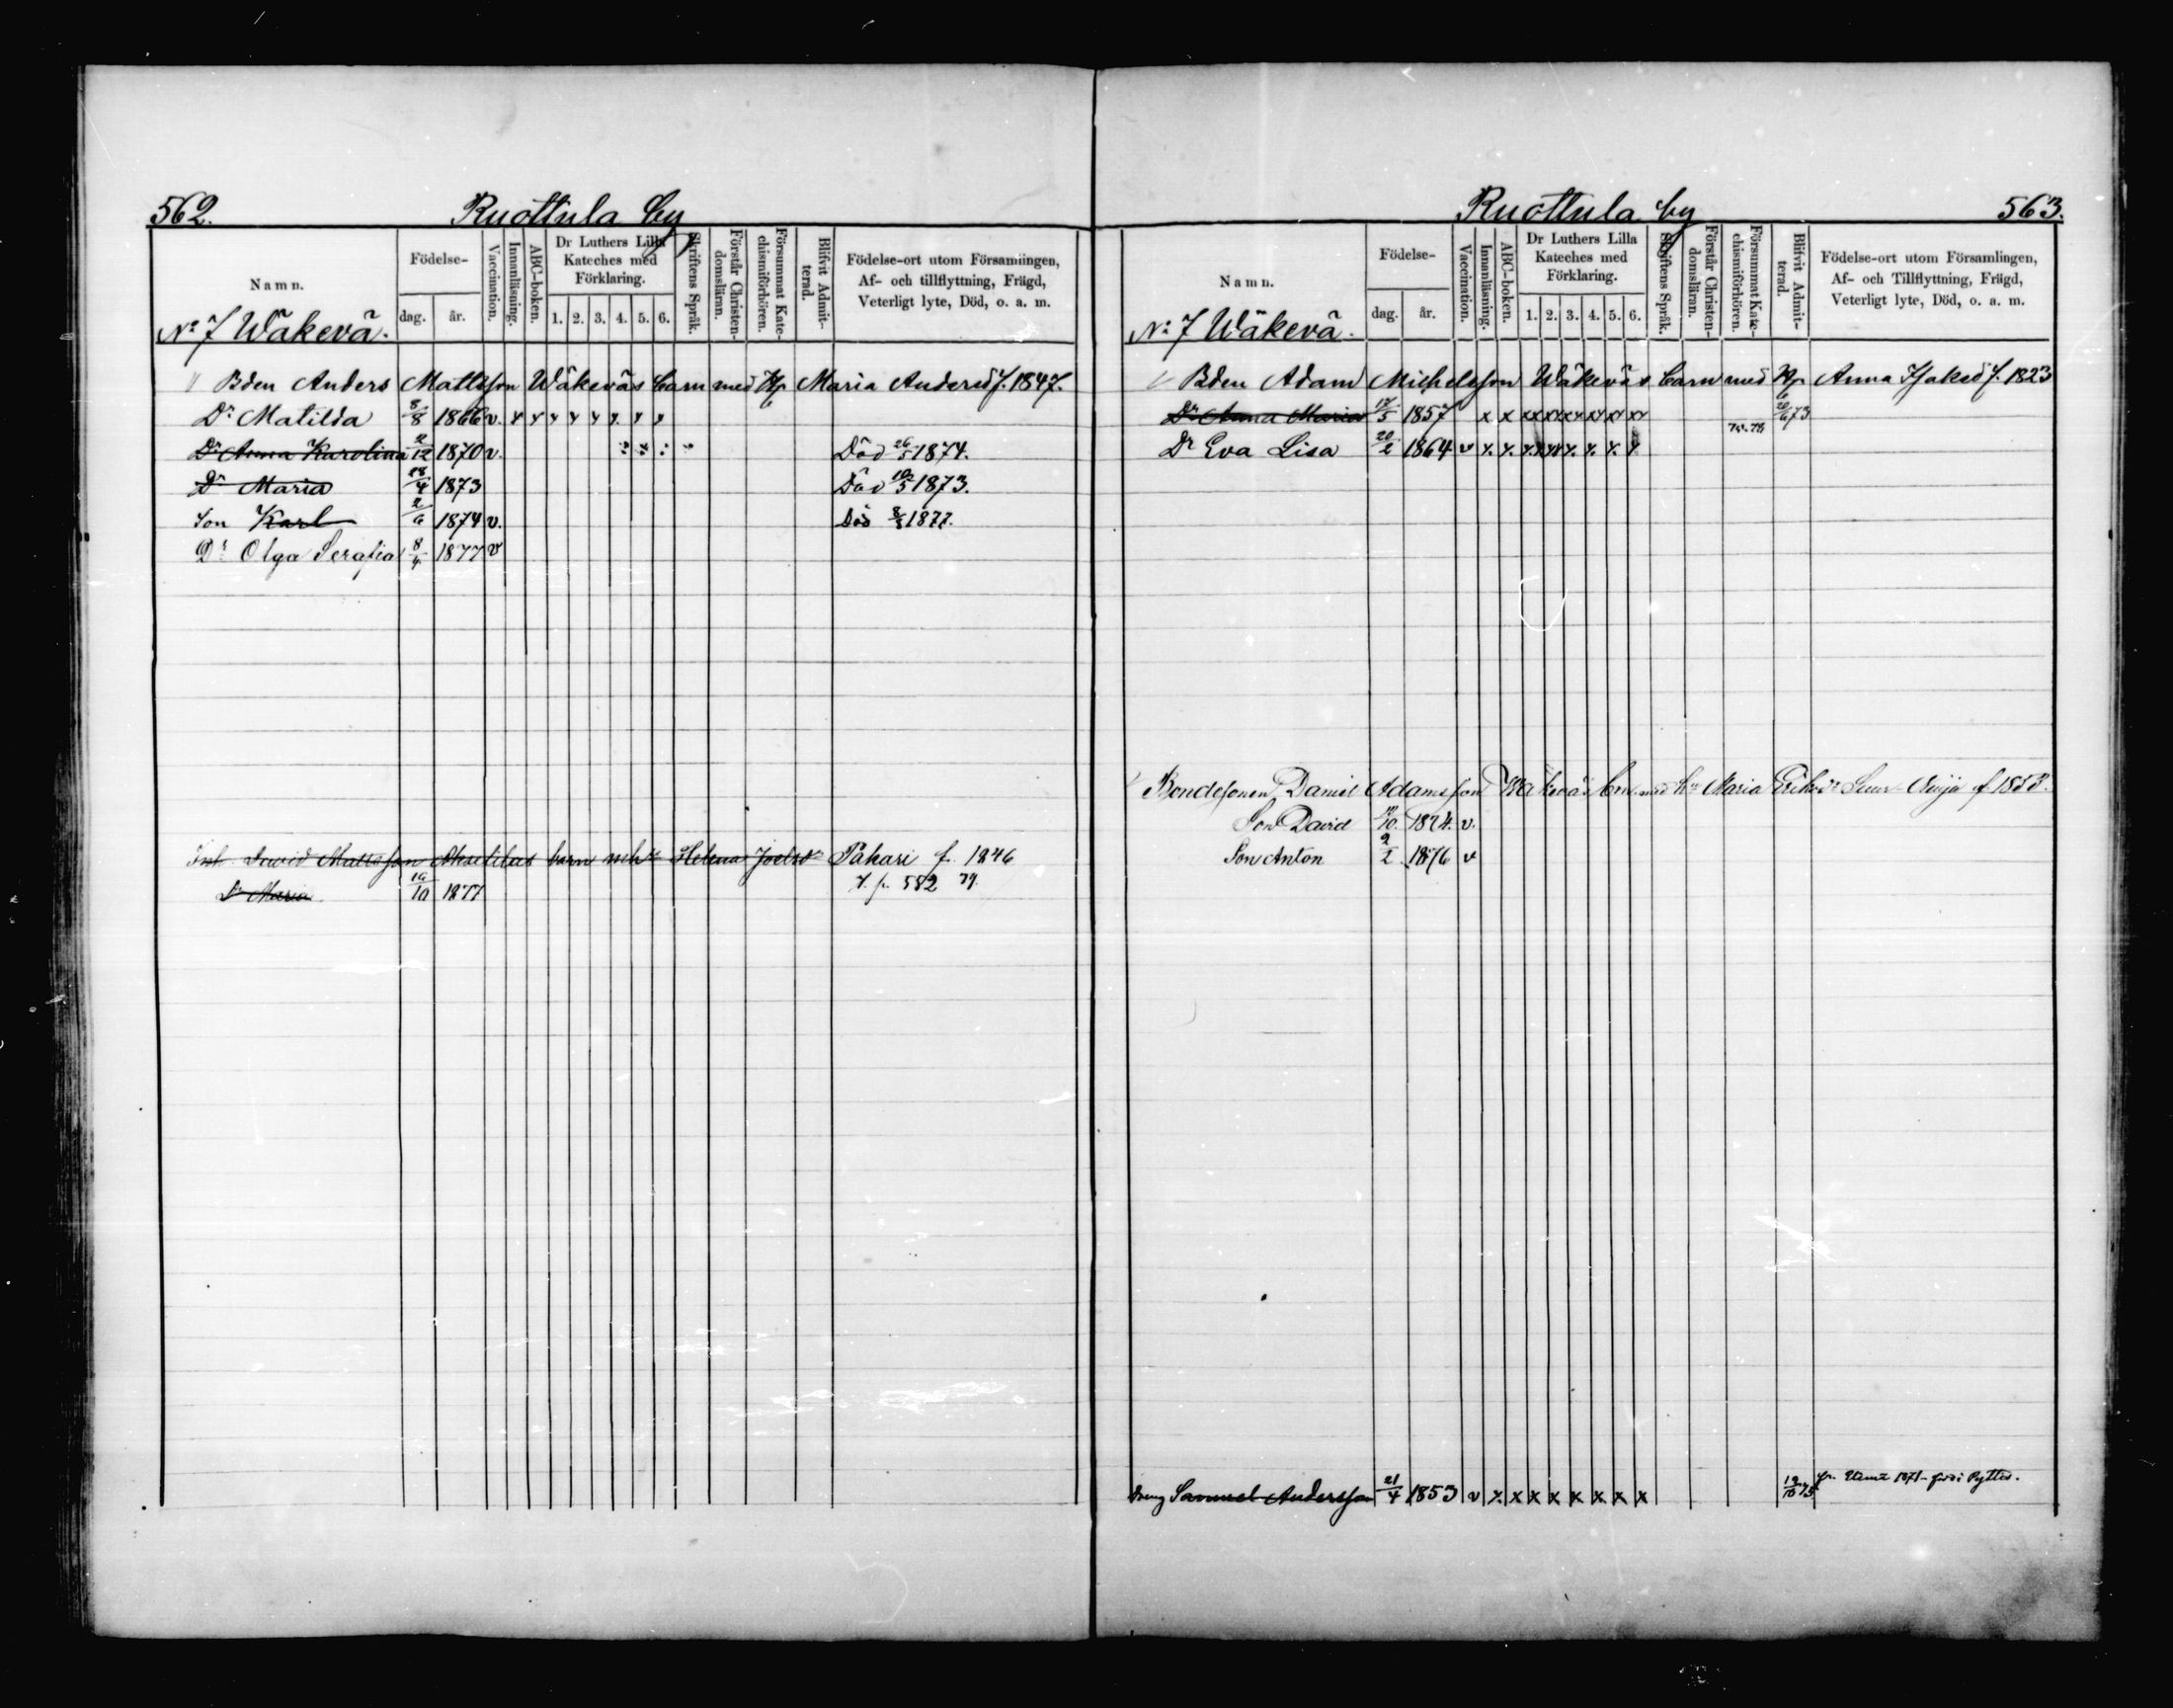 562.
Ruottula by
Namn.
Födelse-
dag.
år.
Vaccination.
Innanläsning.
ABC-boken.
Dr Luthers Lilla Kateches med Förklaring.
1. 2. 3. 4. 5. 6.
Skriftens Språk.
Förstår Christendomsläran.
Försummat Katechismiförhören.
Blifvit Admitterad.
Födelse-ort utom Församlingen, Af- och tillflyttning, Frägd, Veterligt lyte, Död, o. a. m.
No 7 Wäkevä.
Bden Anders Mattsson Wäkeväs barn med Hu Maria Andersdr f. 1847.
Dr Matilda 8/8 1866 v. x x x x x x x x
Dr Anna Karolina 2/12 1870 v. Död 26/5 1874.
Dr Maria 18/4 1873 Död 10/5 1873.
Son Karl 2/6 1874 v. Död 8/3 1877.
Dr Olga Serafia 8/4 1877 v
Inh. David Mattsson barn m h:u Helena Joelsdr Pakari f. 1846
Dr Maria 19/10 1877 T. p. 582 79.
Ruottula by
563.
Namn.
Födelse-
dag.
år.
Vaccination.
Innanläsning.
ABC-boken.
Dr Luthers Lilla Kateches med Förklaring.
1. 2. 3. 4. 5. 6.
Skriftens Språk.
Förstår Christendomsläran.
Försummat Katechismiförhören.
Blifvit Admitterad.
Födelse-ort utom Församlingen, Af- och Tillflyttning, Frägd, Veterligt lyte, Död, o. a. m.
No 7 Wäkevä.
Bden Adam Michelsson Wäkeväs barn med Hu Anna Isaksdr f. 1823
Dr Anna Maria 17/5 1857 x x xx xx xx xx xx xx 73
Dr Eva Lisa 20/2 1864 v x. x. x x x x. x. x. x.
Bondesonen Daniel Adamsson Wäkeväs bn med h:u Maria Eriksdr f 1853.
Son David 10. 1874. v.
Son Anton 9/2 1876 v
Dreng Samuel Andersson 21/4 1853 v x. x x x x x x x 19/10 75 fr. 1871 Pyttis.